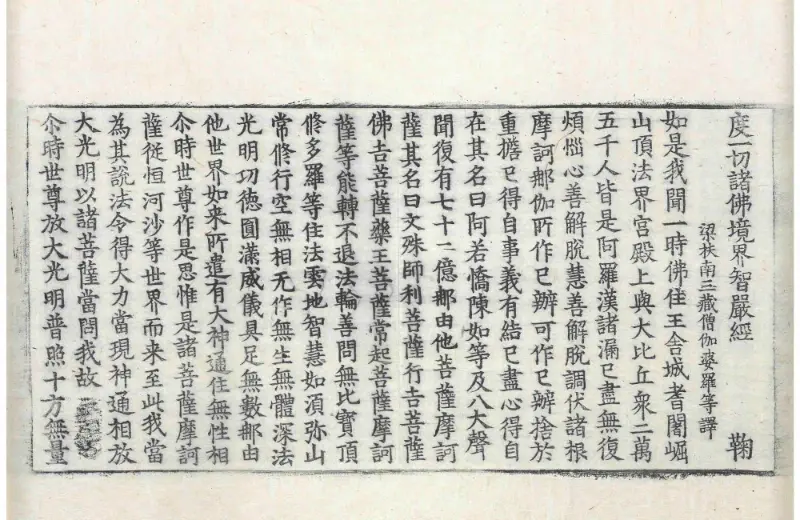 度一切諸佛境界智嚴經 鞠
梁扶南三藏僧伽婆羅等譯
如是我聞一時佛住王舍城耆闍崛
山頂法界宮殿上與大比丘衆二萬
五千人皆是阿羅漢諸漏已盡無復
煩惱心善解脫慧善解脫調伏諸根
摩訶那伽所作已辦可作已辦捨於
重擔已得自事義有結已盡心得自
在其名曰阿若憍陳如等及八大聲
聞復有七十二億那由他菩薩摩訶
薩其名曰文殊師利菩薩行吉菩薩
佛吉菩薩藥王菩薩常起菩薩摩訶
薩等能轉不退法輪善問無比寶頂
修多羅等住法雲地智慧如須弥山
常修行空無相无作無生無體深法
光明功德圓滿威儀具足無數那由
他世界如来所遣有大神通住無性相
尒時世尊作是思惟是諸菩薩摩訶
薩從恒河沙等世界而来至此我當
為其說法令得大力當現神通相放
大光明以諸菩薩當問我故
尒時世尊放大光明普照十方無量